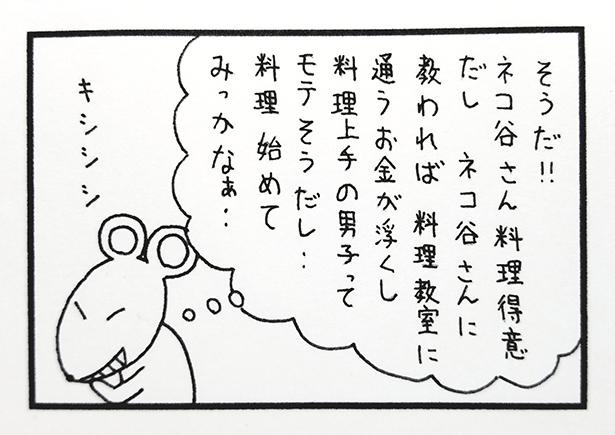 そうだ!!
ネコ谷さん料理得意
だし ネコ谷さんに
教われば 料理教室に
通うお金が浮くし
料理上手の男子って
モテそうだし‥
料理 始めて
みっかなぁ‥
キシシシ